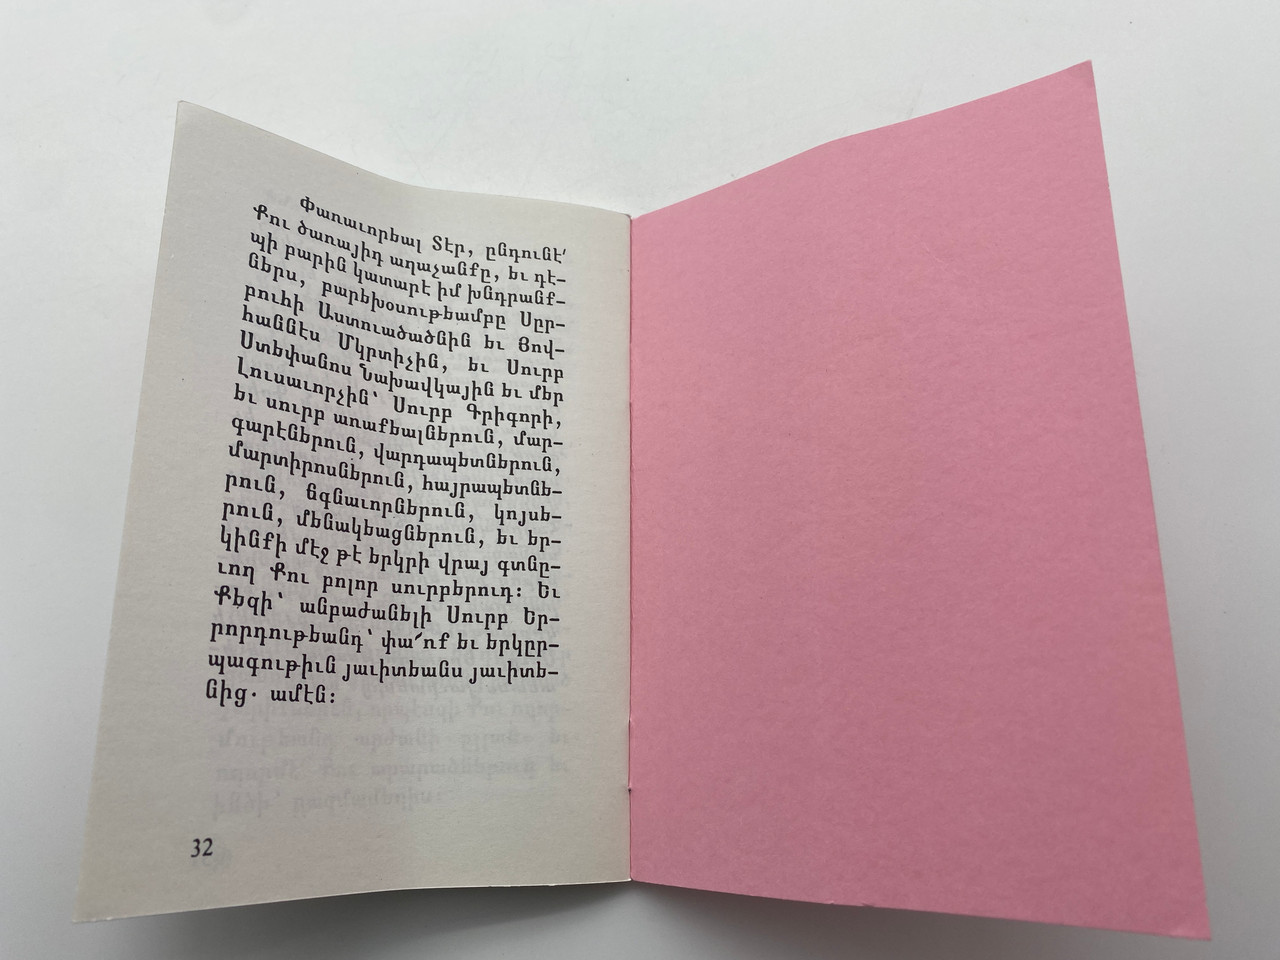 Փառաւորեալ Տէր, ընդունէ՛
Քու ծառայիդ աղաչանքը, եւ դէ-
պի բարին կատարէ իմ խնդրանք-
ներս, բարեխօսութեամբը Սըր-
բուհի Աստուածածնին եւ Յով-
հաննէս Մկրտիչին, եւ Սուրբ
Ստեփանոս Նախավկային եւ մեր
Լուսաւորչին՝ Սուրբ Գրիգորի,
եւ սուրբ առաքեալներուն, մար-
գարէներուն, վարդապետներուն,
մարտիրոսներուն, հայրապետնե-
րուն, ճգնաւորներուն, կոյսե-
րուն, մենակեացներուն, եւ եր-
կինքի մէջ թէ երկրի վրայ գտնը-
ւող Քու բոլոր սուրբերուդ։ Եւ
Քեզի՝ անբաժանելի Սուրբ Եր-
րորդութեանդ՝ փա՜ռք եւ երկըր-
պագութիւն յաւիտեանս յաւիտե-
նից. ամէն։
32